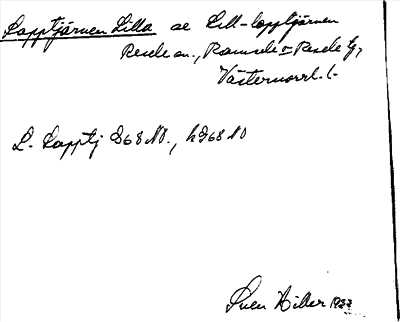 Lapptjärnen Lilla el Lill-lapptjärnen
Resele sn., Ramsele o Resele tg,
Västernorrl. l.
L. Lapptj G68 NV., h G68 NO
Sven Hiller 1933